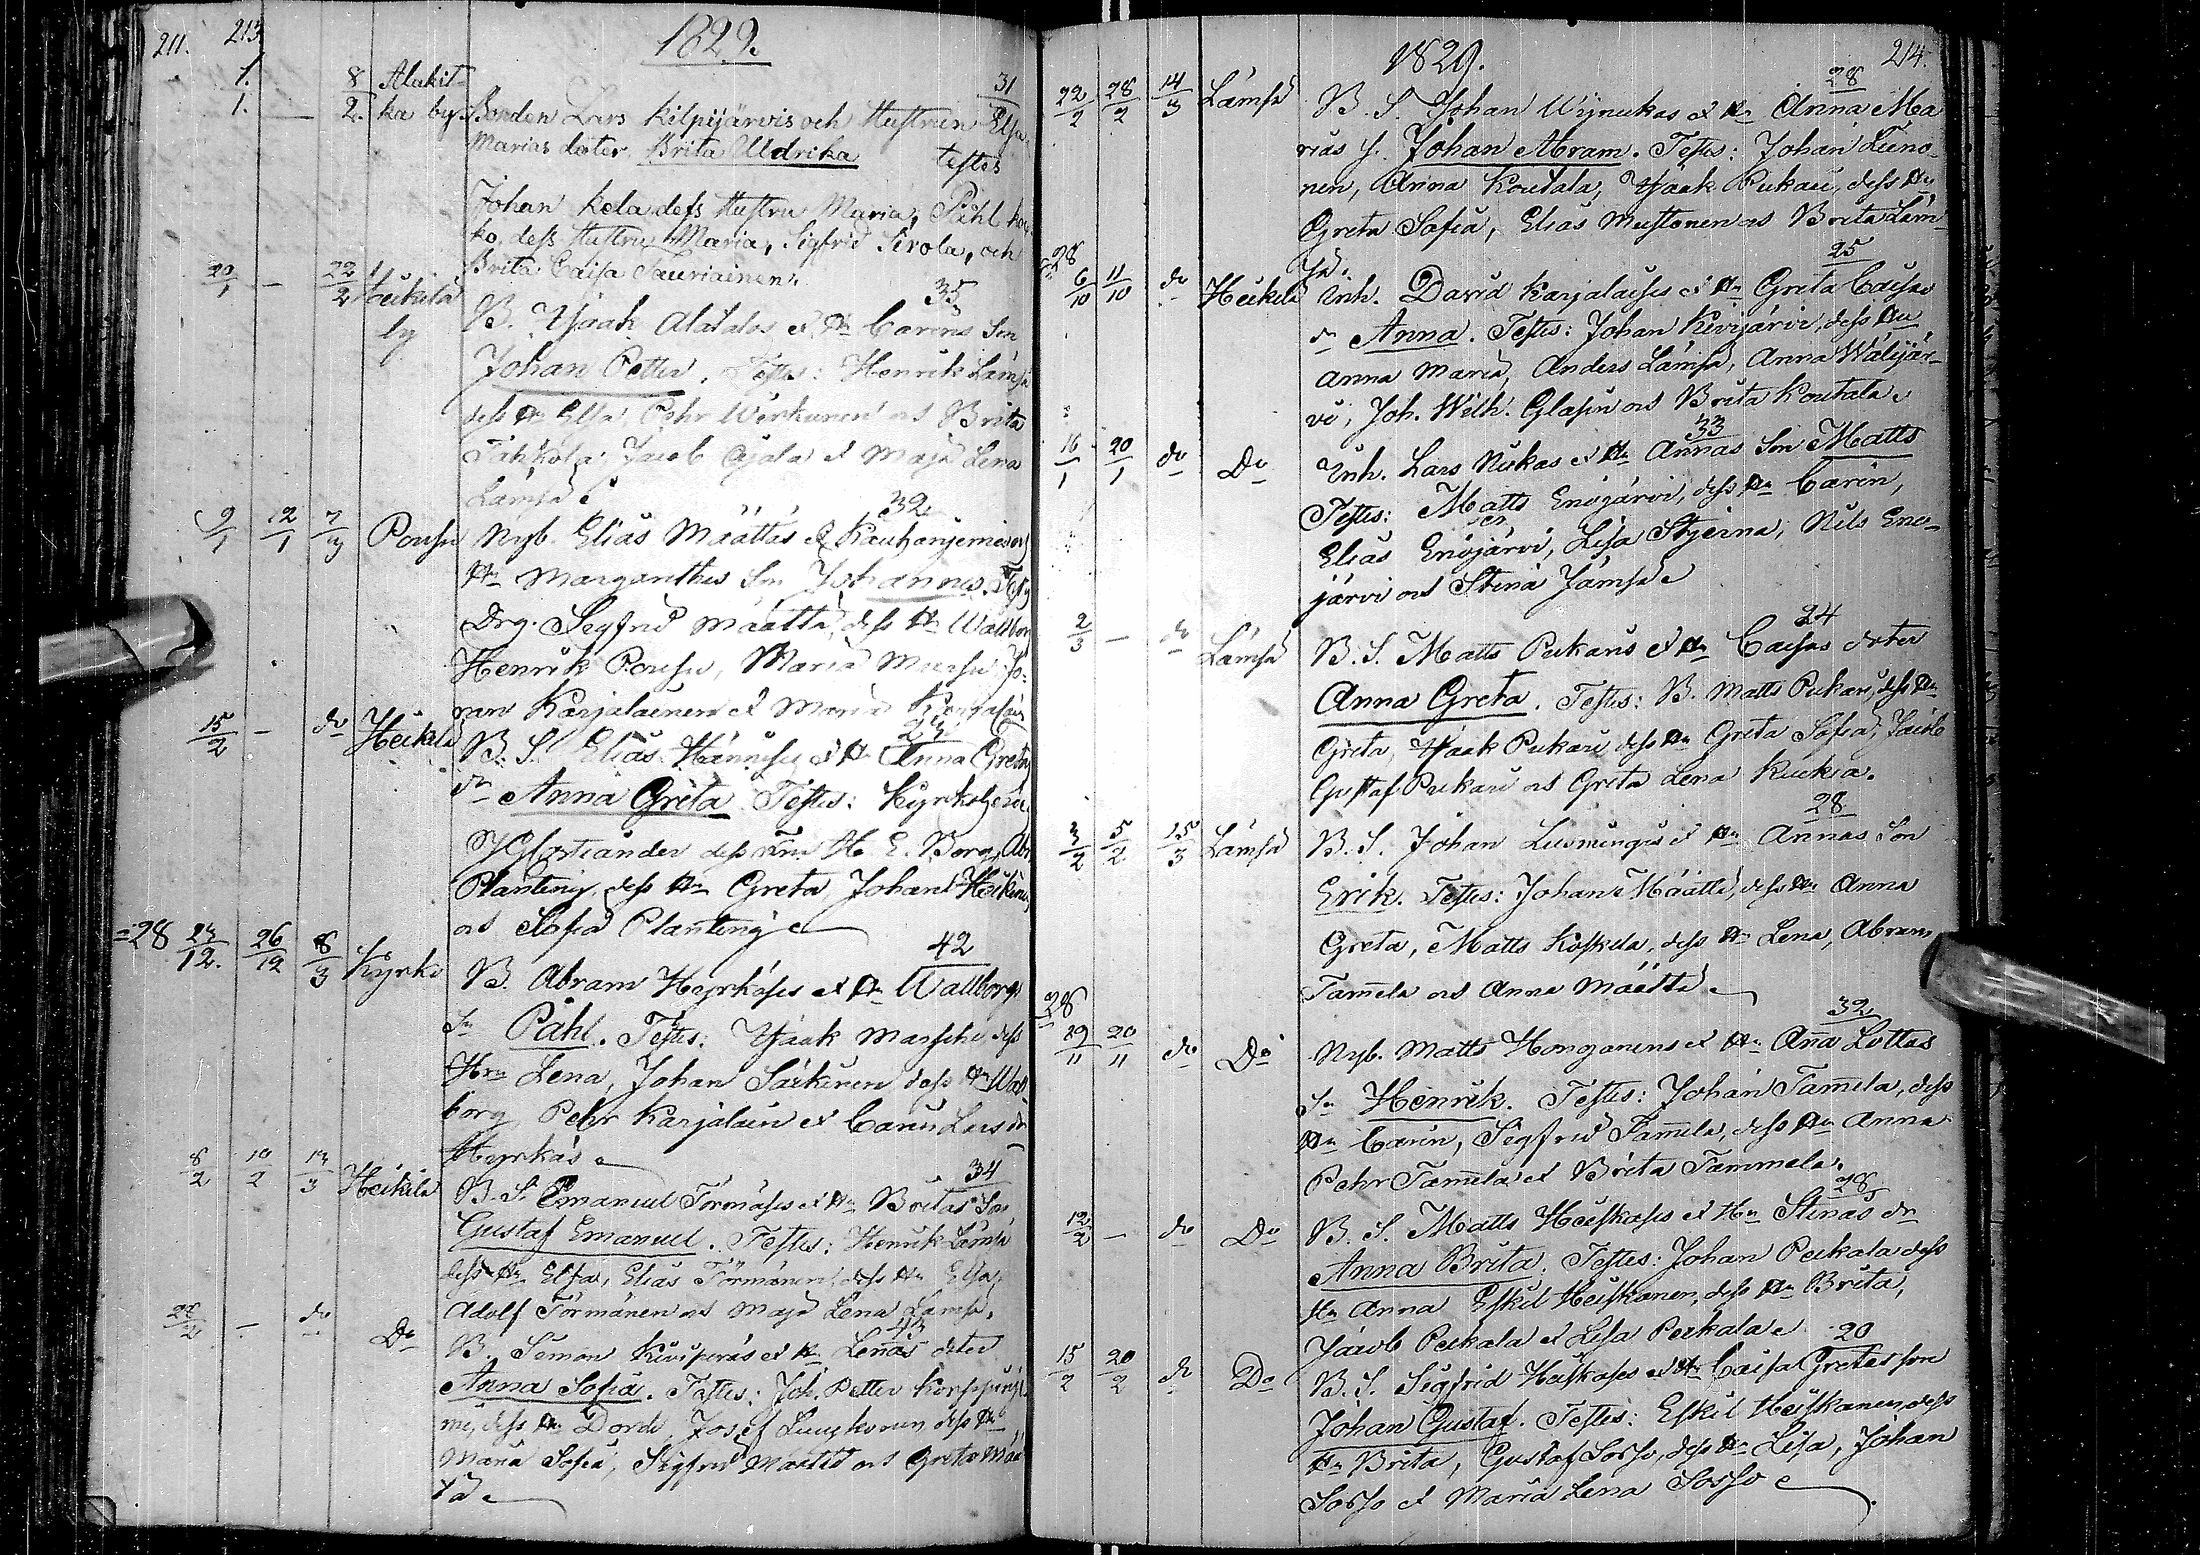 211. 213.
1829.
1. 8 Alakit- 31
1. — 2. ka by. Bonden Lars Kilpijärvis och Hustrun Elsa
Marias doter Brita Uldrika testes
Johan Kela dess Hustru Maria, Påhl
ko, dess Hustru Maria, Sigfrid Sirola, och
Brita Caisa Sauriainen.
20/1 — 22/2 Heikilä by 35
B. Isaak Alatalos et Hu Carins Son
Johan Petter. Testes: Henrik Lämsä
dess Hu Elsa, Pehr Wirkunen och Brita
Tähkola, Jacob Ojala et Maja Lena
Lämsä
9/1 12/1 7/3 Poussu 32
Nyb. Elias Määttäs
Hu Margarethes Son Johannes. Test
Drg. Segfrid Määttä, dess Hu Wallbor
Henrik Poussu, Maria Mursu Jo-
nan Karjalainen et Maria
15/2 — do Heikilä 24
B. S. Elias Hännises et Hu Anna Greta
dr Anna Greta Testes: Kyrkoherde
dess Fru H. E. Borg, Abr
Planting, dess Hu Greta Johan Heikinen
och Sofia Planting
=28 23/12. 26/12 8/3 Kyrko 42
B. Abram Hyrkäses et Hu Wallborgs
Sn Påhl. Testes: Isaak dess
Hru Lena, Johan Särkinen dess Hu Wall
borg Pehr Karjalain et Carin Lars dr
Hyrkäs
8/2 10/2 13/3 Heikilä 34
B. S. Emanuel Törmäses et Hu Britas Son
Gustaf Emanuel. Testes: Henrik Lämsä
dess Hu Elsa, Elias Törmänen dess Hu Elsa,
Adolf Törmänen och Maja Lena Lämsä.
22/2 — do Do 43
B. Simon Kiviperäs et Hu Lenas doter
Anna Sofia. Testes: Joh. Petter
mi, dess Hu Dorde, Josef dess Hu
Maria Sofia, Sigfrid Määttä och Greta Mää
tä
1829. 214.
22/2 28/2 14/3 Lämsä 28
B. S. Johan Wijnukas et Hu Anna Ma
rias S. Johan Abram. Testes: Johan Leino-
nen, Anna Koutala, Isaak Pukari, dess Hu
Greta Sofia, Elias Mustonen och Brita Läm-
sä.
28 6/10 11/10 do Heikilä 25
Inh. David Karjalaises et Hu Greta Caisas
dr Anna. Testes: Johan Kivijärvi, dess Hu
Anna Maria, Anders Lämsä, Anna Wälijär-
vi, Joh. Wilh. Glasin och Brita Koutala
16/1 20/1 do Do 33
Inh. Lars Niskas et Hu Annas Son Matts
Testes: Matts Enojärvi, dess Hu Carin,
Elias Enojärvi, Lisa Stjerna, Nils Eno-
järvi och Stina Jämsä
2/3 — do Lämsä 24
B. S. Matts Pukaris et Hu Caisas doter
Anna Greta. Testes: B. Matts Pukari, dess Hu
Greta, Isaak Pukari dess Hu Greta Sofia, Jacob
Gustaf Pukari och Greta Lena
3/2 5/2 15/3 Lämsä 28
B. S. Johan et Hu Annas Son
Erik. Testes: Johan Määttä, dess Hu Anna
Greta, Matts Koskela, dess Hu Lena, Abram
Tam̅ela och Anna Määttä
28 19/11 20/11 do Do 32
Nyb. Matts Honganens et Hu An̅a Lottas
Sn Henrik. Testes: Johan Tam̅ela, dess
Hu Carin, Segfrid Tam̅ela, dess Hu Anna
Pehr Tam̅ela et Brita Tammela.
12/2 — do Do 28
B. S. Matts Heiskases et Hu Stinas dr
Anna Brita. Testes: Johan Peikala dess
Hu Anna Eskil Heiskanen, dess Hu Brita,
Jacob Peikala et Lisa Peikala
15/2 20/2 do Do 20
B. S. Sigfrid Heiskases et Hu Caisa Gretas son
Johan Gustaf. Testes: Eskil Heiskanen, dess
Hu Brita, Gustaf Sorso, dess Hu Lisa, Johan
Sorso et Maria Lena Sorso